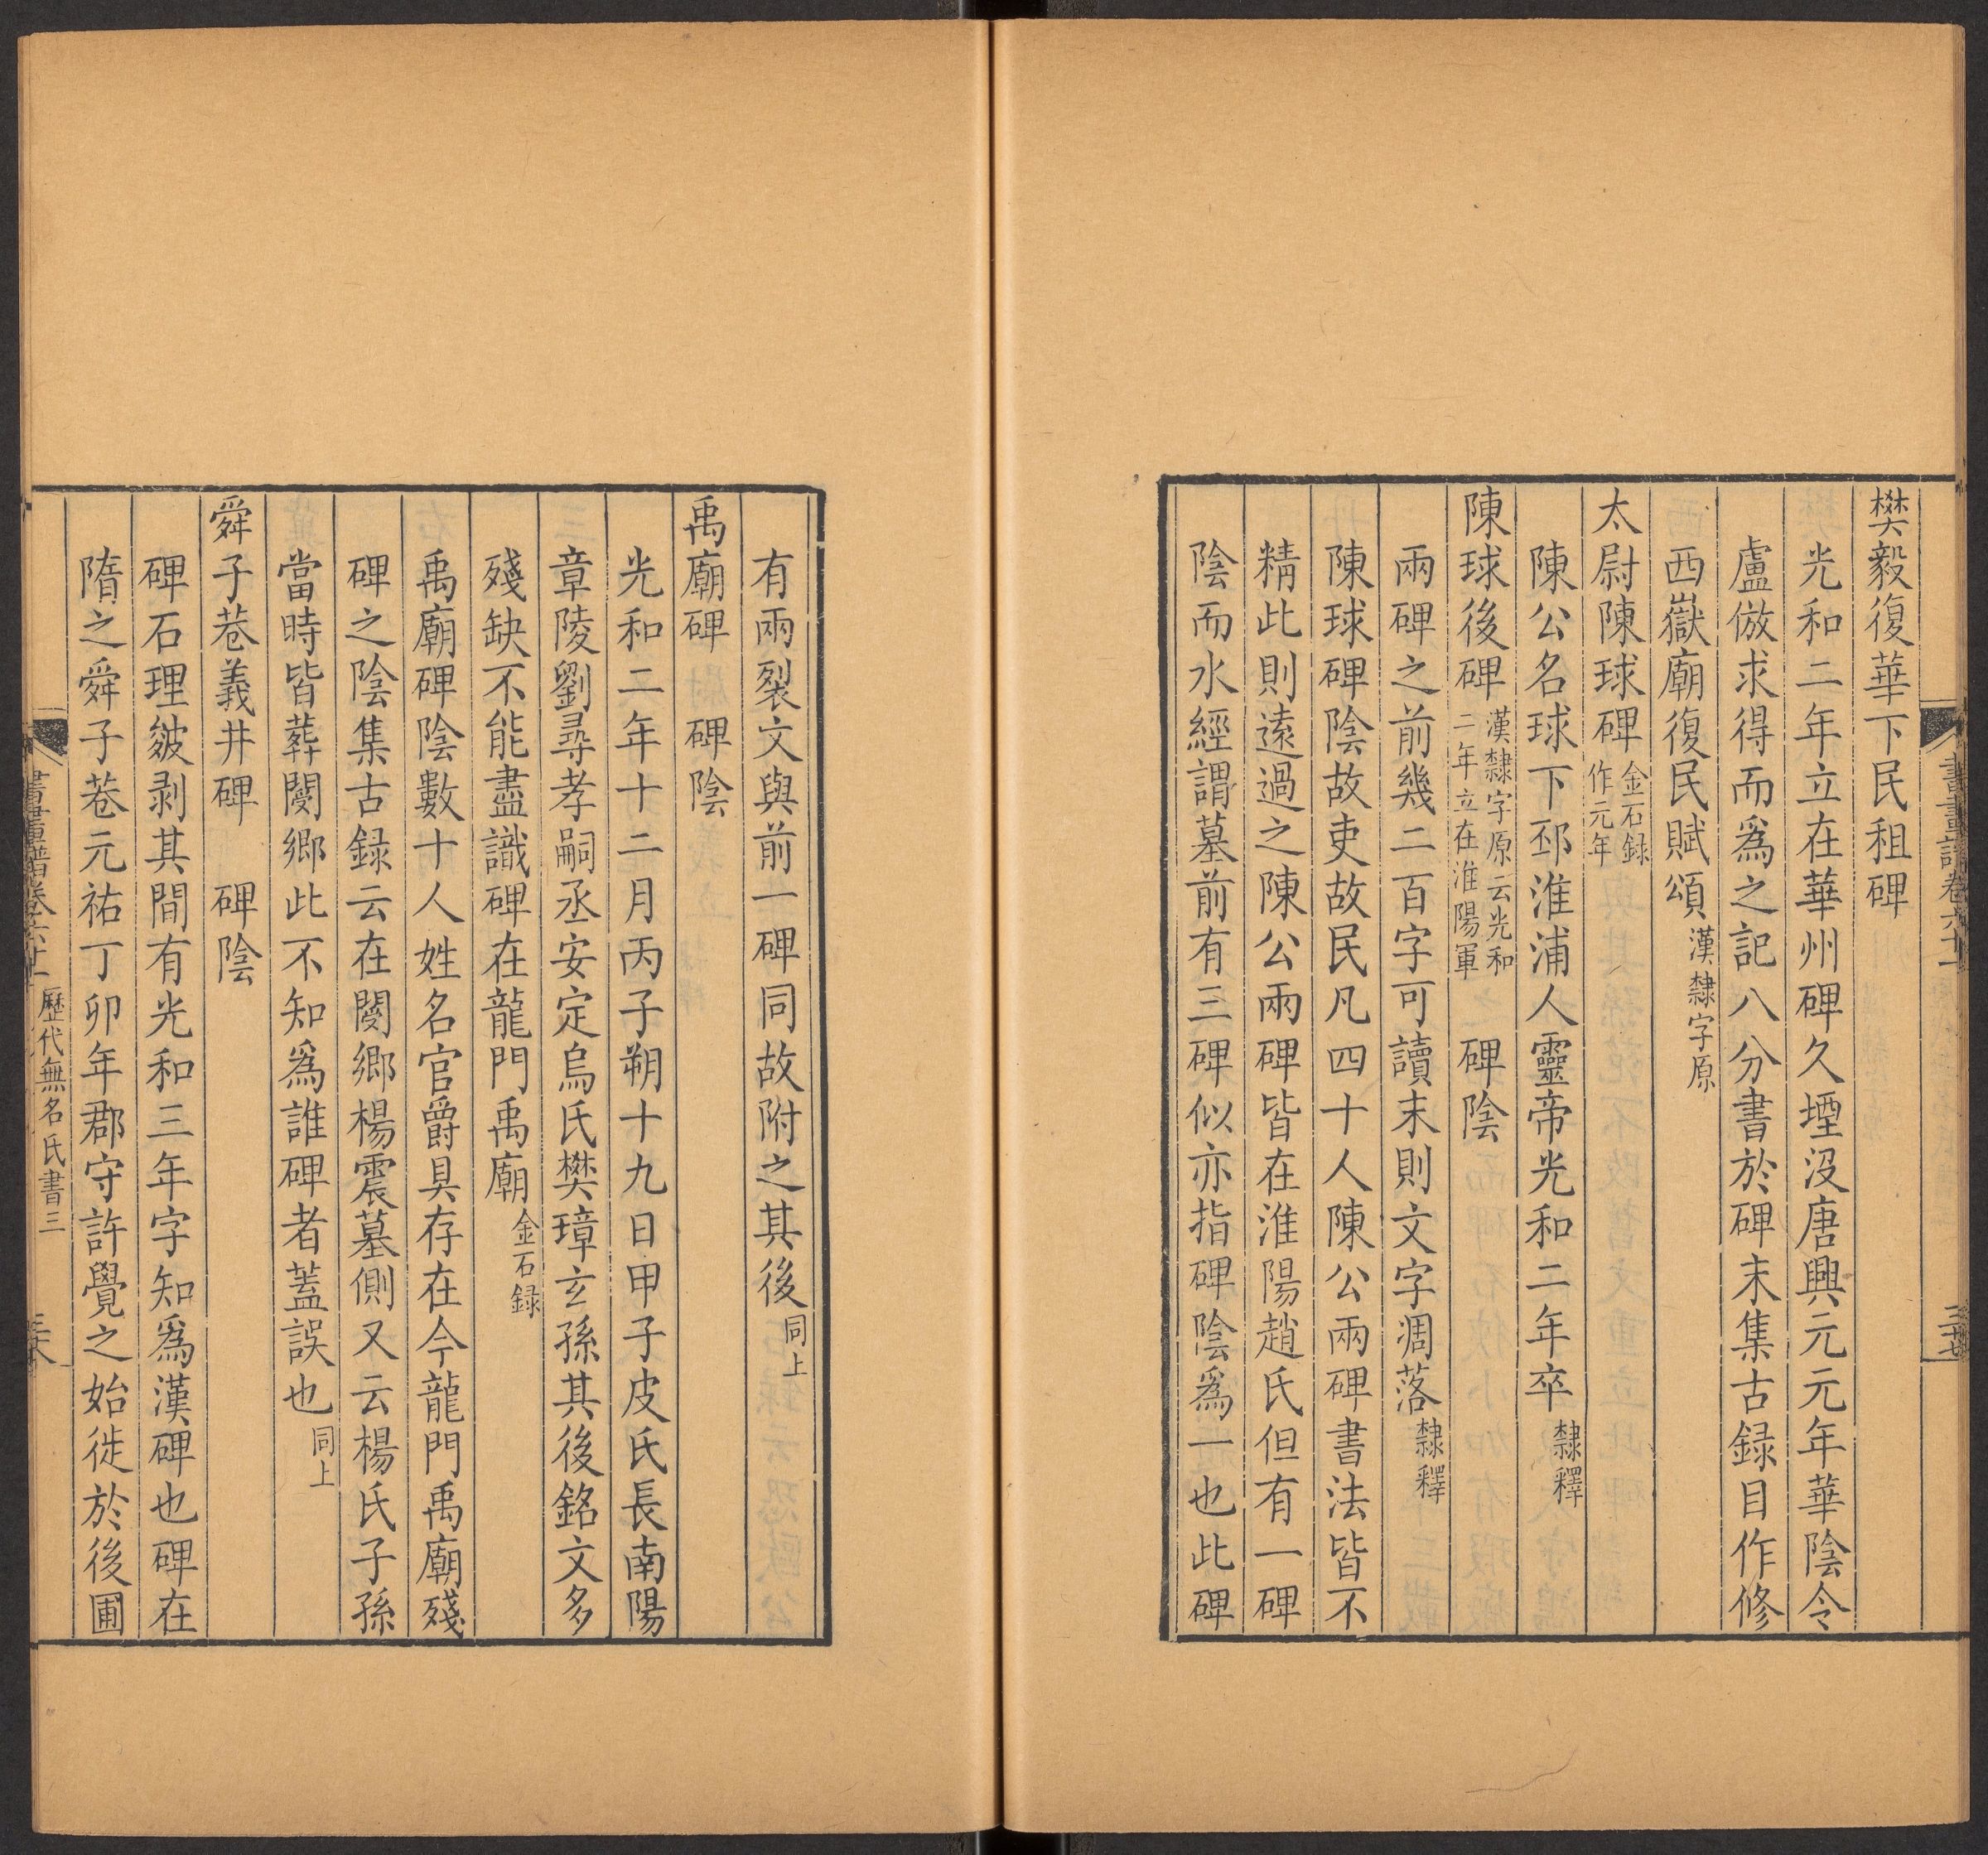 樊毅復華下民租碑
光和二年立在華州碑久堙沒唐興元元年華陰令
盧倣求得而爲之記八分書於碑末集古録目作修
西嶽廟復民賦頌漢隸字原
太尉陳球碑金石録作元年
陳公名球下邳淮浦人靈帝光和二年卒隸釋
陳球後碑漢隸字原云光和二年立在淮陽軍 碑陰
兩碑之前幾二百字可讀末則文字凋落隸釋
陳球碑陰故吏故民凡四十人陳公兩碑書法皆不
精此則遠過之陳公兩碑皆在淮陽趙氏但有一碑
陰而水經謂墓前有三碑似亦指碑陰爲一也此碑
有兩裂文與前一碑同故附之其後同上
禹廟碑 碑陰
光和二年十二月丙子朔十九日甲子皮氏長南陽
章陵劉尋孝嗣丞安定烏氏樊璋玄孫其後銘文多
殘缺不能盡識碑在龍門禹廟金石録
禹廟碑陰數十人姓名官爵具存在今龍門禹廟殘
碑之陰集古録云在閿鄉楊震墓側又云楊氏子孫
當時皆葬閿鄉此不知爲誰碑者蓋誤也同上
舜子巷義井碑 碑陰
碑石理皴剥其間有光和三年字知爲漢碑也碑在
隋之舜子巷元祐丁卯年郡守許覺之始徙於後圃
書畫譜卷六十一 歷代無名氏書三